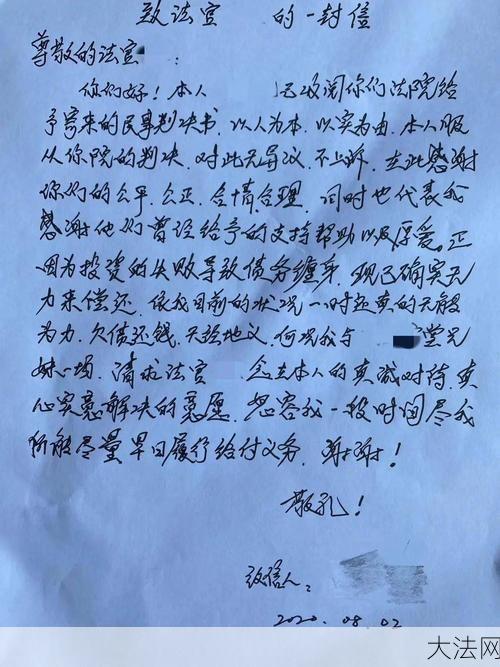 致法官 的一封信
尊敬的法官 :
你们好!本人 已收阅你们法院给
予寄来的民事判决书,以人为本,以实为由,本人服
从你院的判决,对此无异议,不上诉,在此感谢
你们的公平、公正,合情合理,同时也代表我
感谢他们曾经给予的支持帮助以及厚爱,正
因为投资的失败导致债务缠身,现已确实无
力来偿还,依我目前的状况一时还真的无能
为力,欠债还钱,天经地义,何况我与 堂兄
妹一场,请求法官 念在本人的真诚对待,真
心实意解决的意愿,宽容我一段时间尽我
所能尽量早日履行给付义务,谢谢!
敬礼!
致信人:
2020.08.02
大法网